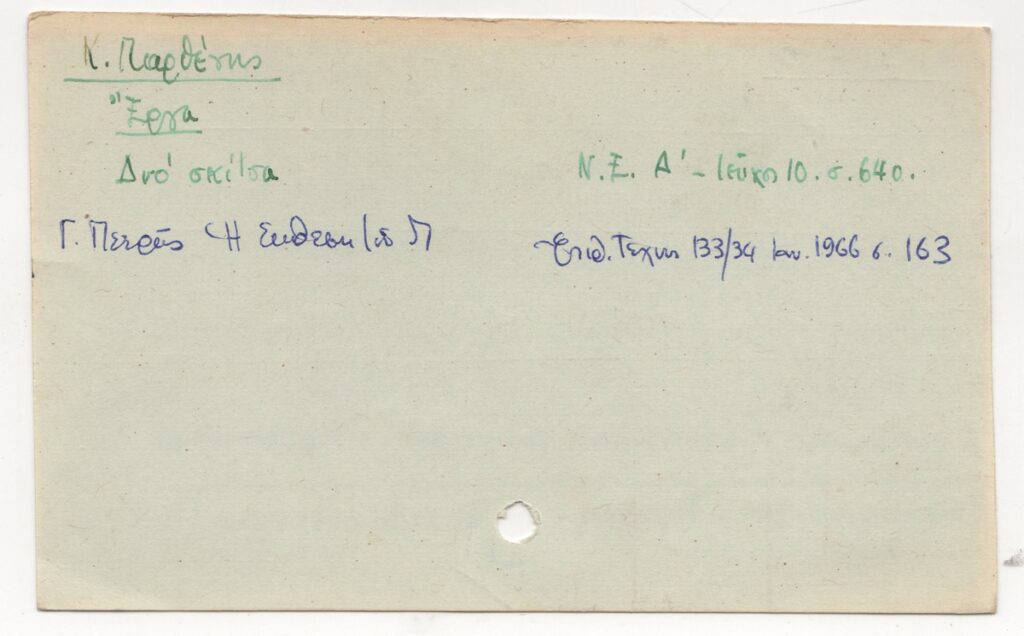 Κ. Παρθένης
Ἔργα
Δυό σκίτσα Ν.Ε. Α' - τεῦχος 10. σ. 640.
Γ. Πετρής Ἡ Ἔκθεση τοῦ Π Ἐπιθ. Τέχνης 133/34 Ιαν. 1966 σ. 163